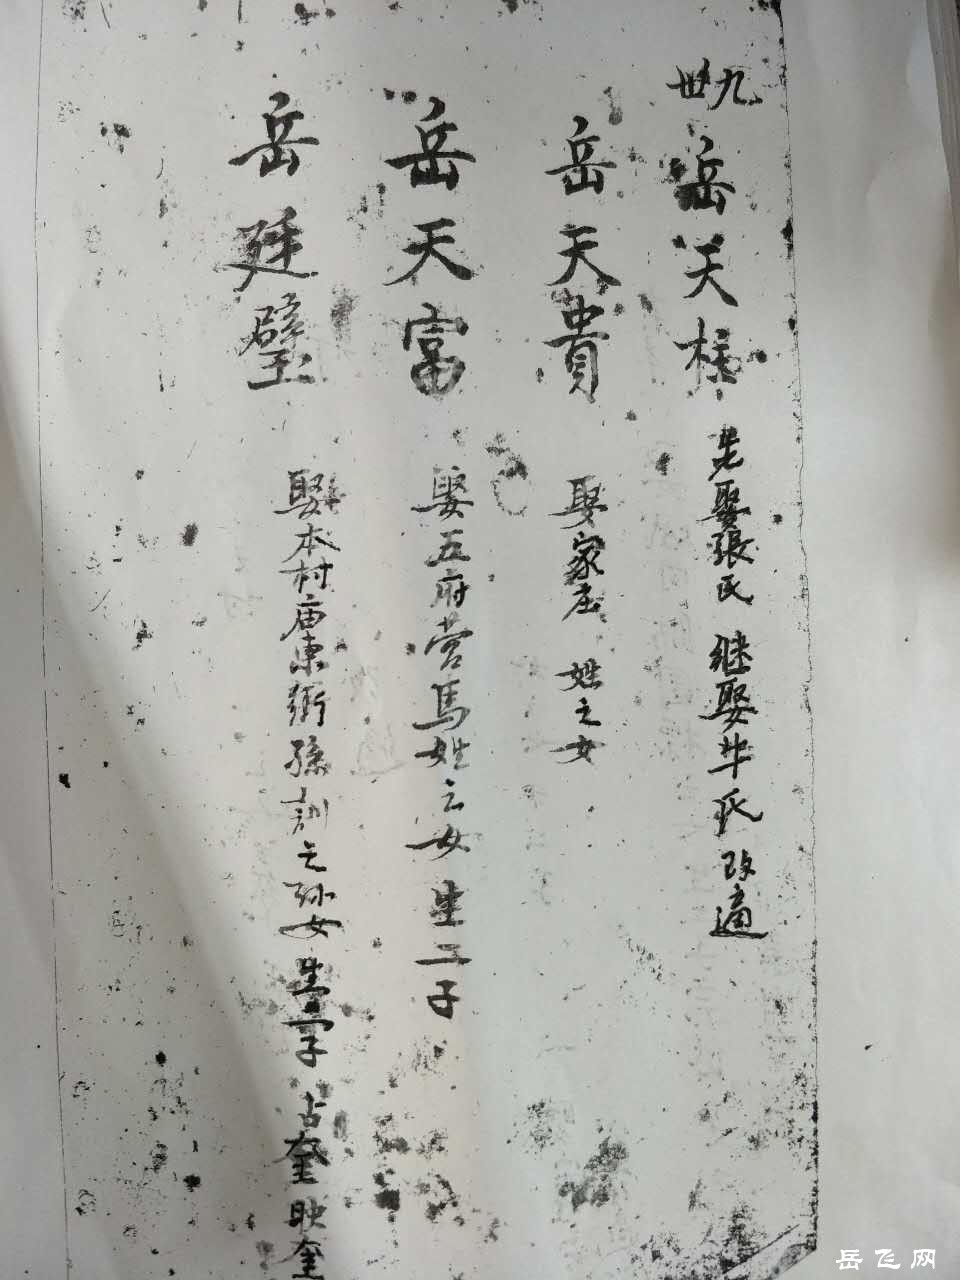 九世
岳天柱 先娶張氏 继娶牛氏 改適
岳天貴 娶家庄 姓之女
岳天富 娶五府营馬姓之女 生二子
岳廷璧 娶本村庙東街孫訓之孫女 生二子 占奎 映奎
岳飞网